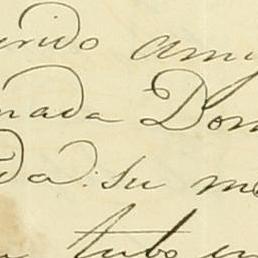 erido ami
nada Dom
da: su me
tubo en